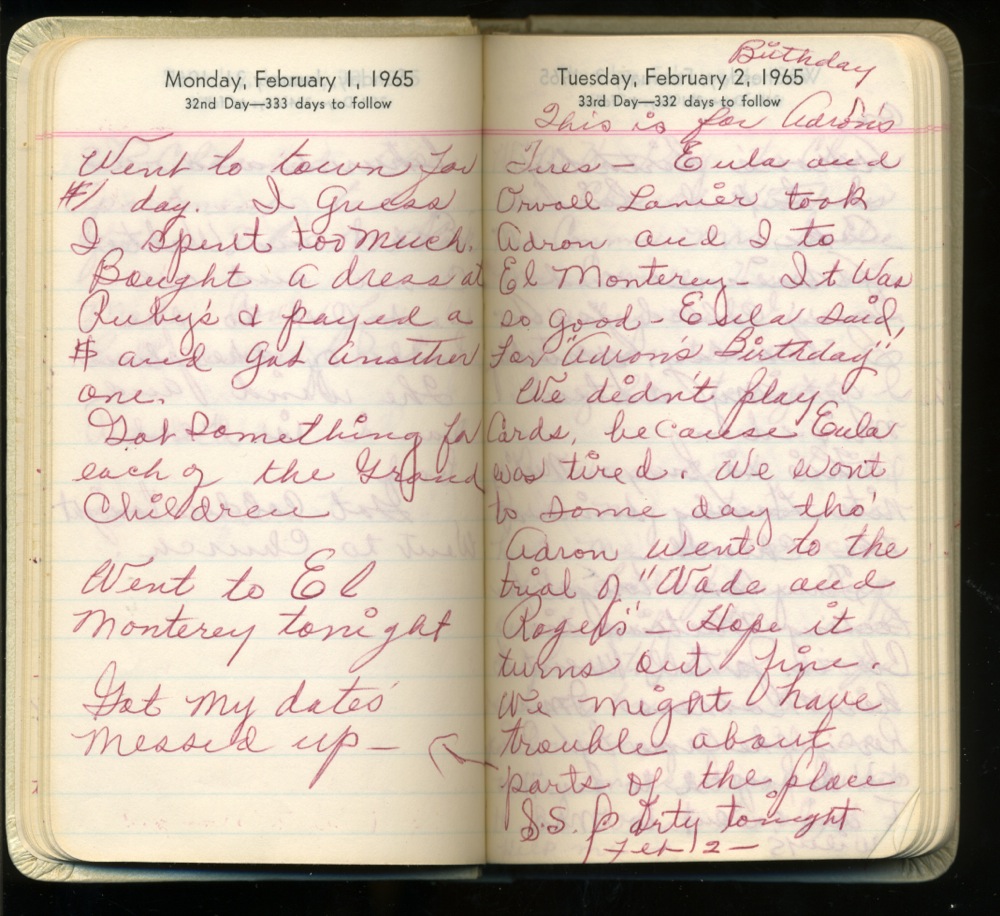 Monday, February 1, 1965
32nd Day—333 days to follow
Went to town for
$1 day. I Guess
I spent too much.
Bought a dress at
Ruby's & payed a
$ and got another
one.
Got something for
each of the Grand
Children
Went to El
Monterey tonight
Got my dates
messed up —
Birthday
Tuesday, February 2, 1965
33rd Day—332 days to follow
This is for Adron's
Tues — Eula and
Orvall Lanier took
Adron and I to
El Monterey — It was
so good — Eula said,
for "Adron's Birthday"
We didn't play
Cards, because Eula
was tired. We wont
to some day tho'
Adron went to the
trial of "Wade and
Rogers" — Hope it
turns out fine.
We might have
trouble about
parts of the place
S.S. Party tonight
Feb 2 —